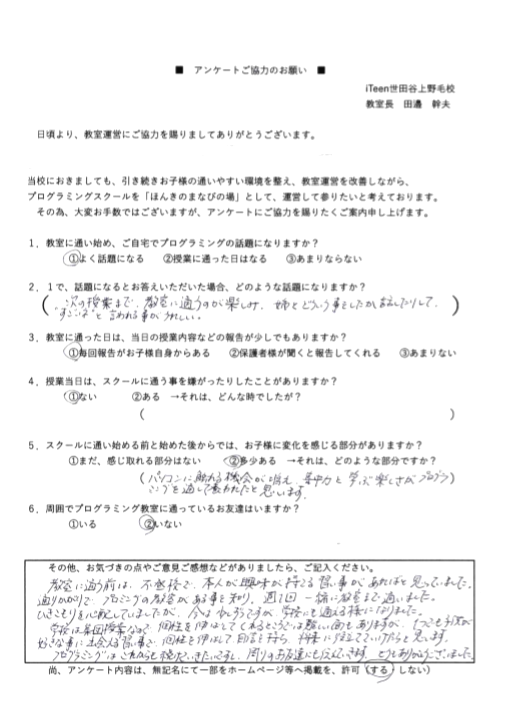 ■ アンケートご協力のお願い ■
iTeen世田谷上野毛校
教室長 田邉 幹夫
日頃より、教室運営にご協力を賜りましてありがとうございます。
当校におきましても、引き続きお子様の通いやすい環境を整え、教室運営を改善しながら、
プログラミングスクールを「ほんきのまなびの場」として、運営して参りたいと考えております。
その為、大変お手数ではございますが、アンケートにご協力を賜りたくご案内申し上げます。
1．教室に通い始め、ご自宅でプログラミングの話題になりますか？
①よく話題になる ②授業に通った日はなる ③あまりならない
2．１で、話題になるとお答えいただいた場合、どのような話題になりますか？
( 次の授業まで、教室に通うのが楽しみ、姉とどういう事をしたかお話したりして、
"すごいね"と言われる事がうれしい。 )
3．教室に通った日は、当日の授業内容などの報告が少しでもありますか？
①毎回報告がお子様自身からある ②保護者様が聞くと報告してくれる ③あまりない
4．授業当日は、スクールに通う事を嫌がったりしたことがありますか？
①ない ②ある →それは、どんな時でしたか？
( )
5．スクールに通い始める前と始めた後からでは、お子様に変化を感じる部分がありますか？
①まだ、感じ取れる部分はない ②多少ある →それは、どのような部分ですか？
( パソコンに触れる機会が増え、集中力と学ぶ楽しさがプログラ
ミングを通して養われたと思います。
6．周囲でプログラミング教室に通っているお友達はいますか？
①いる ②いない
その他、お気づきの点やご意見ご感想などがありましたら、ご記入ください。
教室に通う前は、不登校で、本人が興味が持てる習い事があればと思っていました。
通りがかりで、プログラミングの教室がある事を知り、週1回一緒に教室まで通いました。
ひきこもりを心配していましたが、今は少しずつですが、学校にも通える様になりました。
学校は集団授業なので、個性を伸ばしてくれるところでは難しい面もありますが、1つでも子供が
好きな事に出会える習い事で、個性を伸ばして自信を持ち、何事にも
プログラミングはこれからも検定いきたいですし、周りのお友達にも伝えていきます。
尚、アンケート内容は、無記名にて一部をホームページ等へ掲載を、許可（する しない）